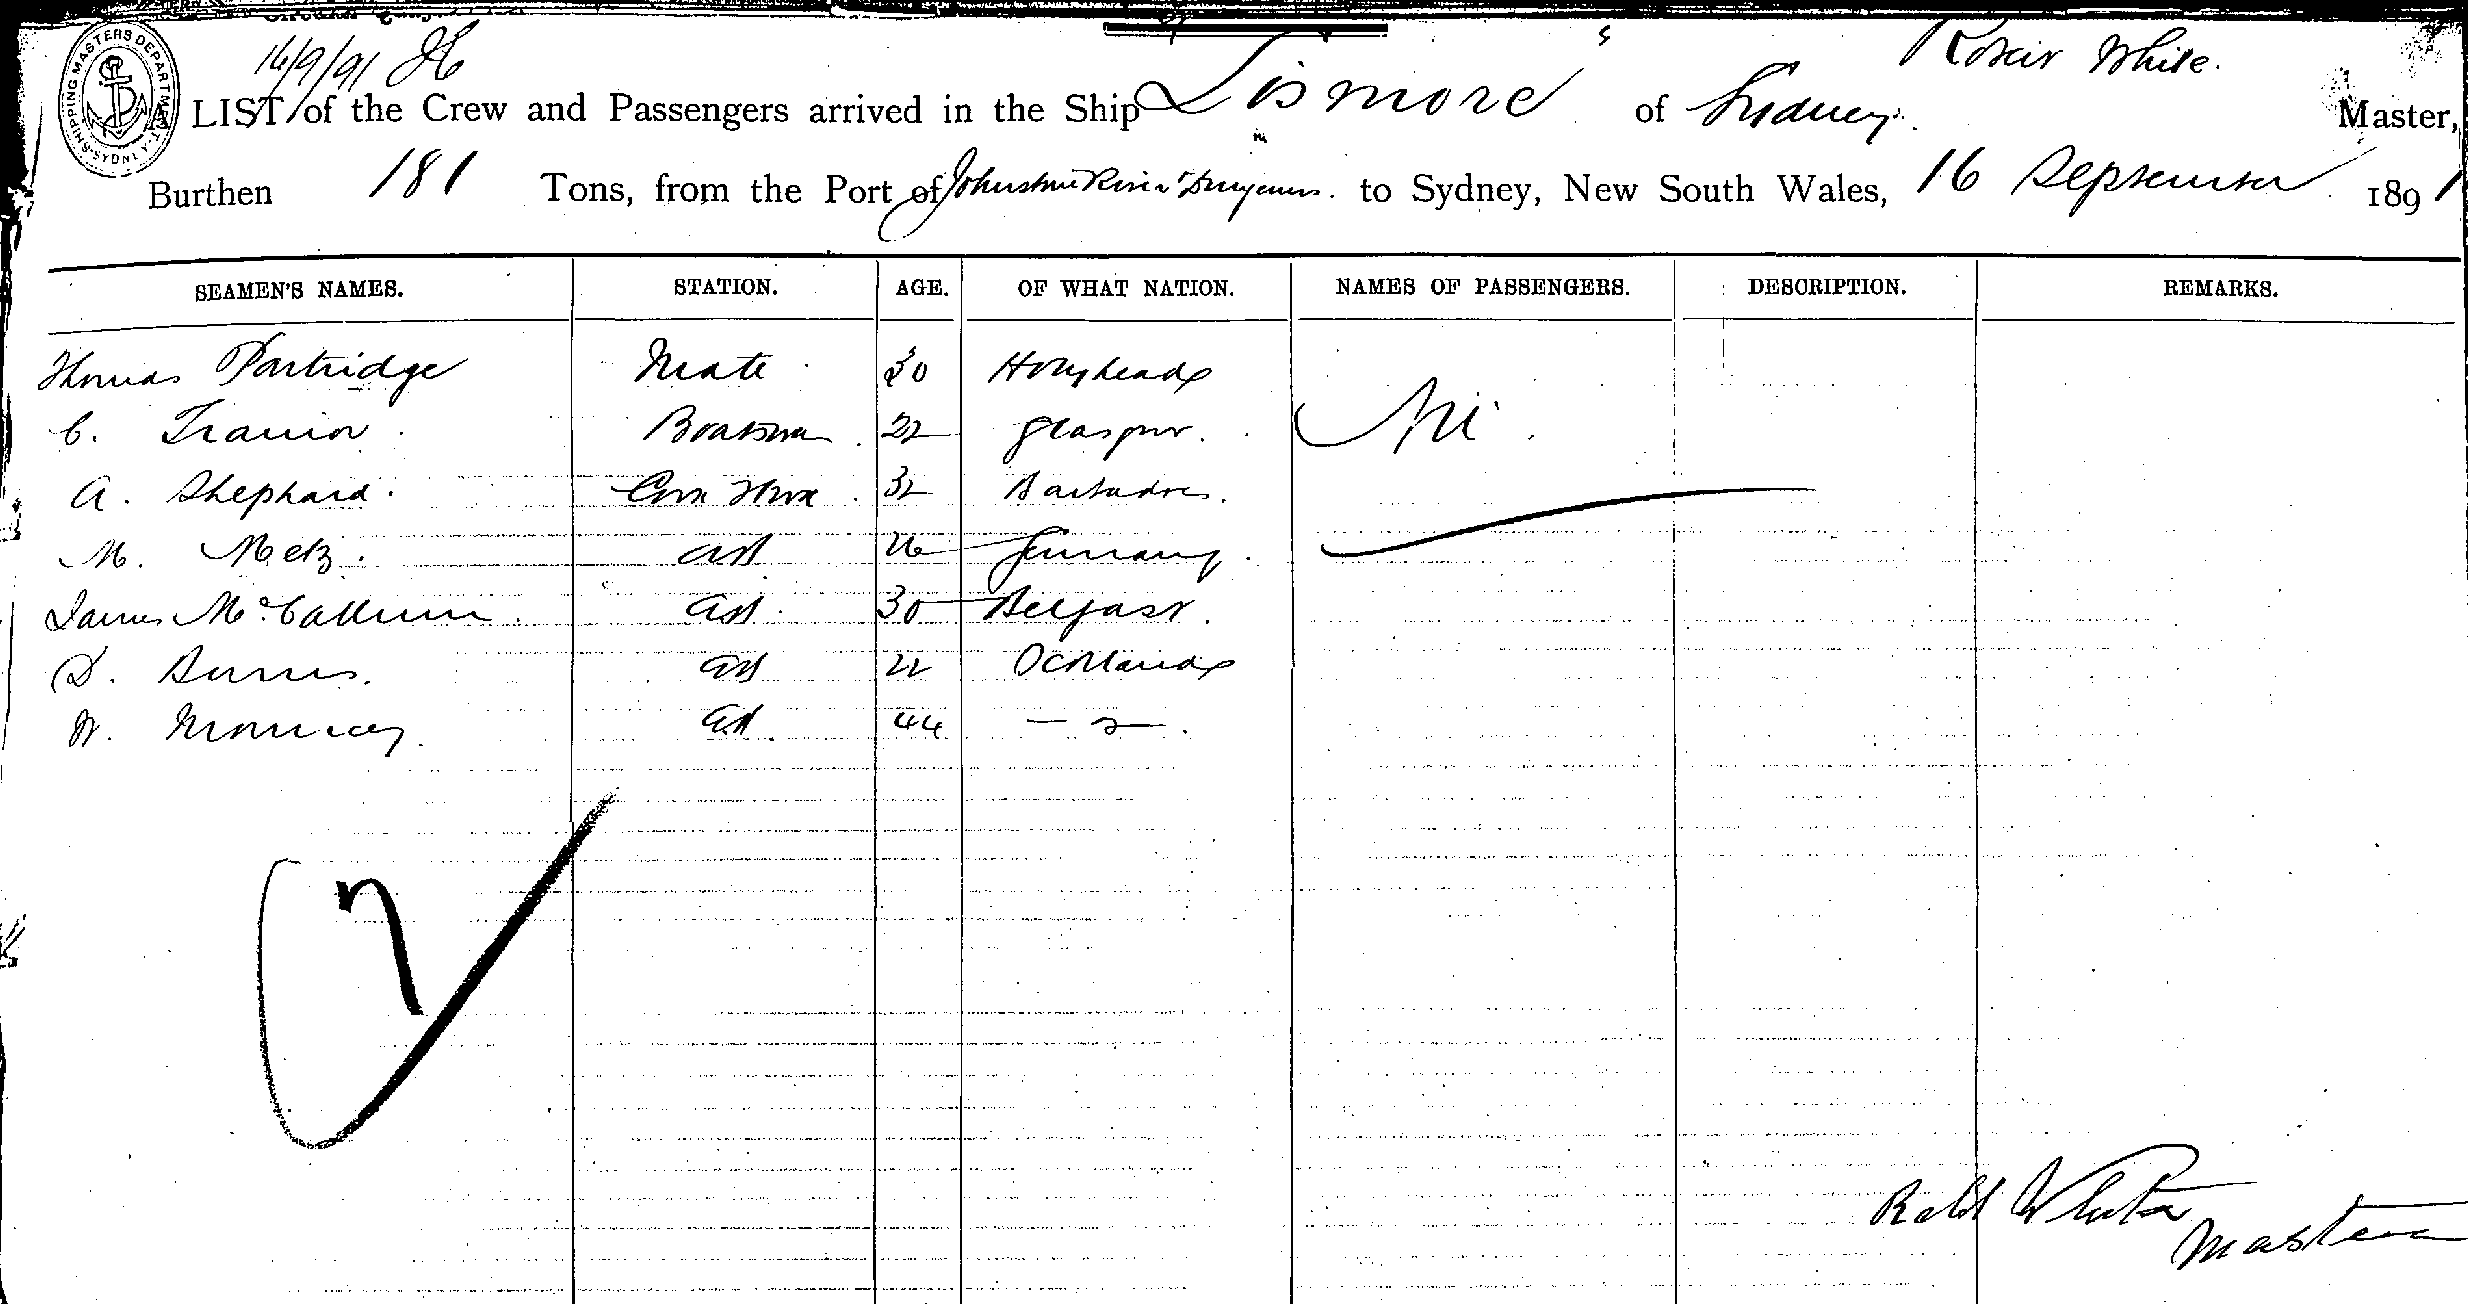 16/9/91
SHIPPING MASTERS DEPARTMENT SYDNEY
Robert White.
LIST of the Crew and Passengers arrived in the Ship "Lismore" of Sydney. Master,
Burthen 181 Tons, from the Port of Johnstone River to Sydney, New South Wales, 16 September 1891
SEAMEN'S NAMES. STATION. AGE. OF WHAT NATION. NAMES OF PASSENGERS. DESCRIPTION. REMARKS.
Thomas Partridge Mate 30 Holyhead Nil.
C. Trainor Boatswn 22 Glasgow.
A. Shephard. 32 Barbadoes.
M. Metz. AB 26 Germany.
James McCallum AB. 30 Belfast.
D. Burns. AB 22 Scotland
W. AB. 44
7
Robt White
Master